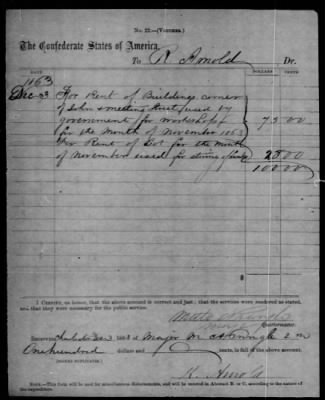 No. 22.—(Voucher.)
The Confederate States of America,
To R Arnold Dr.
DATE DOLLARS CENTS
1863
Dec 23 For Rent of Buildings corner
of John & meeting Street (used by
government) for workshops
for the Month of November 1863 75 00
For Rent of Lot for the month
of November used for 25 00
100 00
I Certify, on honor, that the above account is correct and just; that the services were rendered as stated, and that they were necessary for the public service.
Quartermaster.
Received Dec 1863 of Major
One hundred dollars and cents, in full of the above account.
(SIGNED DUPLICATES.)
R. Arnold
Note.—This form will be used for miscellaneous disbursements, and will be entered in Abstract B or C, according to the nature of the expenditure.